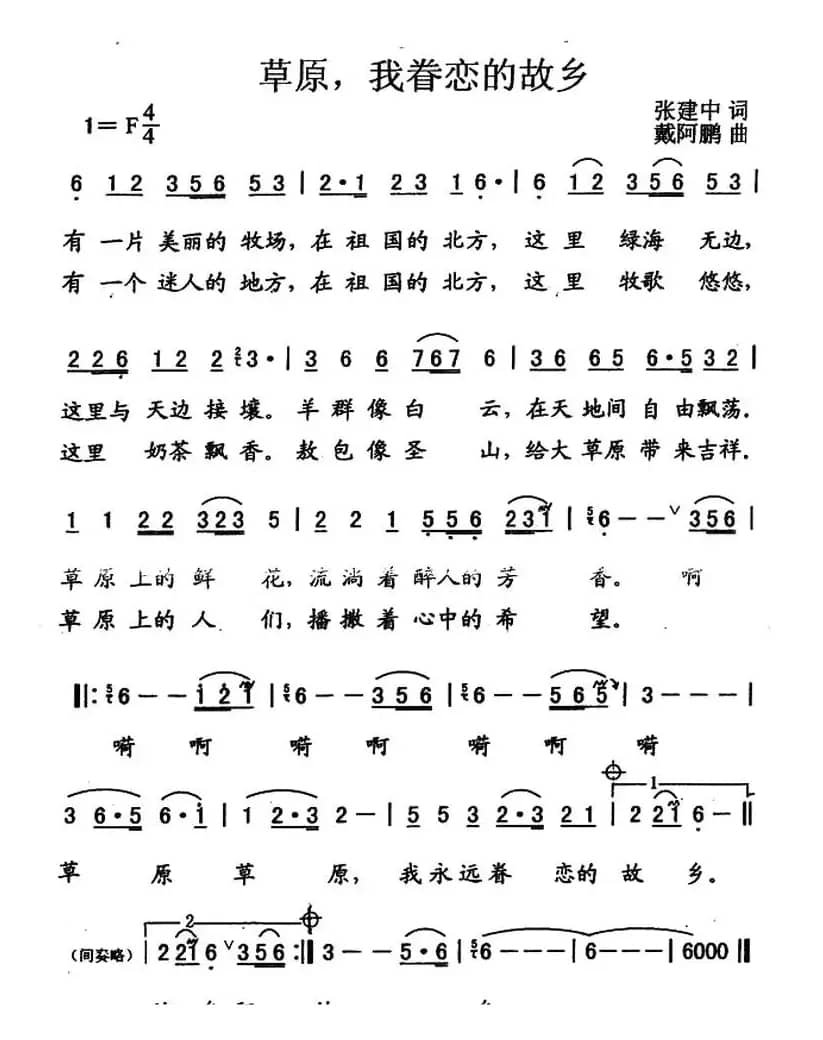 草原，我眷恋的故乡
1＝F 4/4
张建中 词
戴阿鹏 曲
6 12 356 53 | 2·1 23 1 6· | 6 12 356 53 |
有一片美丽的牧场，在祖国的北方，这里绿海无边，
有一个迷人的地方，在祖国的北方，这里牧歌悠悠，
226 12 2 3· | 3 6 6 767 6 | 36 65 6·5 32 |
这里与天边接壤。羊群像白云，在天地间自由飘荡.
这里奶茶飘香。敖包像圣山，给大草原带来吉祥.
1 1 22 323 5 | 2 2 1 556 231 | 6 – – ∨ 356 |
草原上的鲜花，流淌着醉人的芳香。啊
草原上的人们，播撒着心中的希望。
‖: 6 – – 121 | 6 – – 356 | 6 – – 565 | 3 – – – |
嗬啊嗬啊嗬啊嗬
3 6·5 6·1 | 1 2·3 2 – | 5 5 3 2·3 21 | 1 2 221 6 – ‖
草原草原，我永远眷恋的故乡。
（间奏略） 2 2 221 6 ∨ 356 :‖ 3 – – 5·6 | 6 – – – | 6 – – – | 6000 ‖